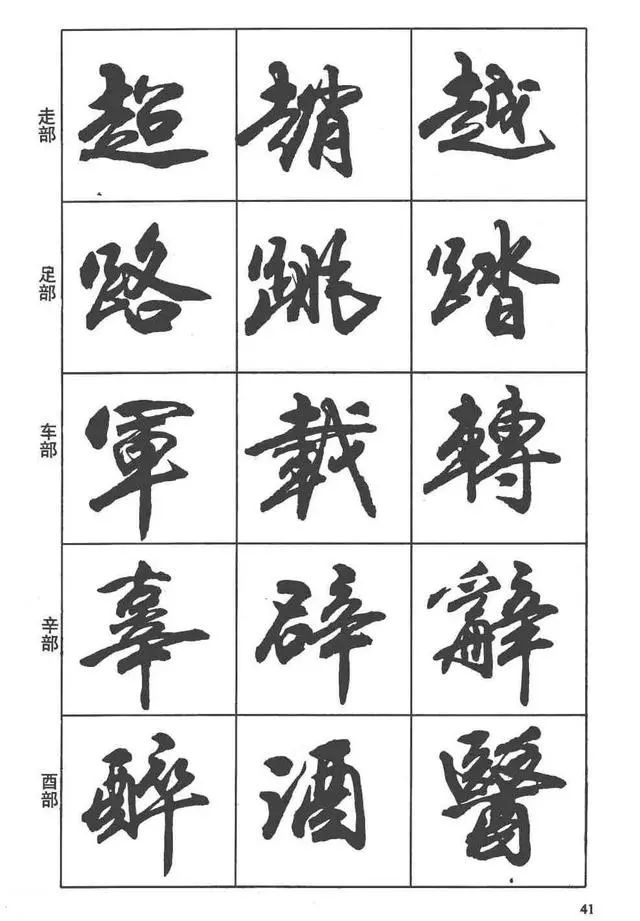 走部 超 趙 越
足部 路 跳 踏
车部 軍 載 轉
辛部 辜 辟 辭
酉部 醉 酒 醫
41